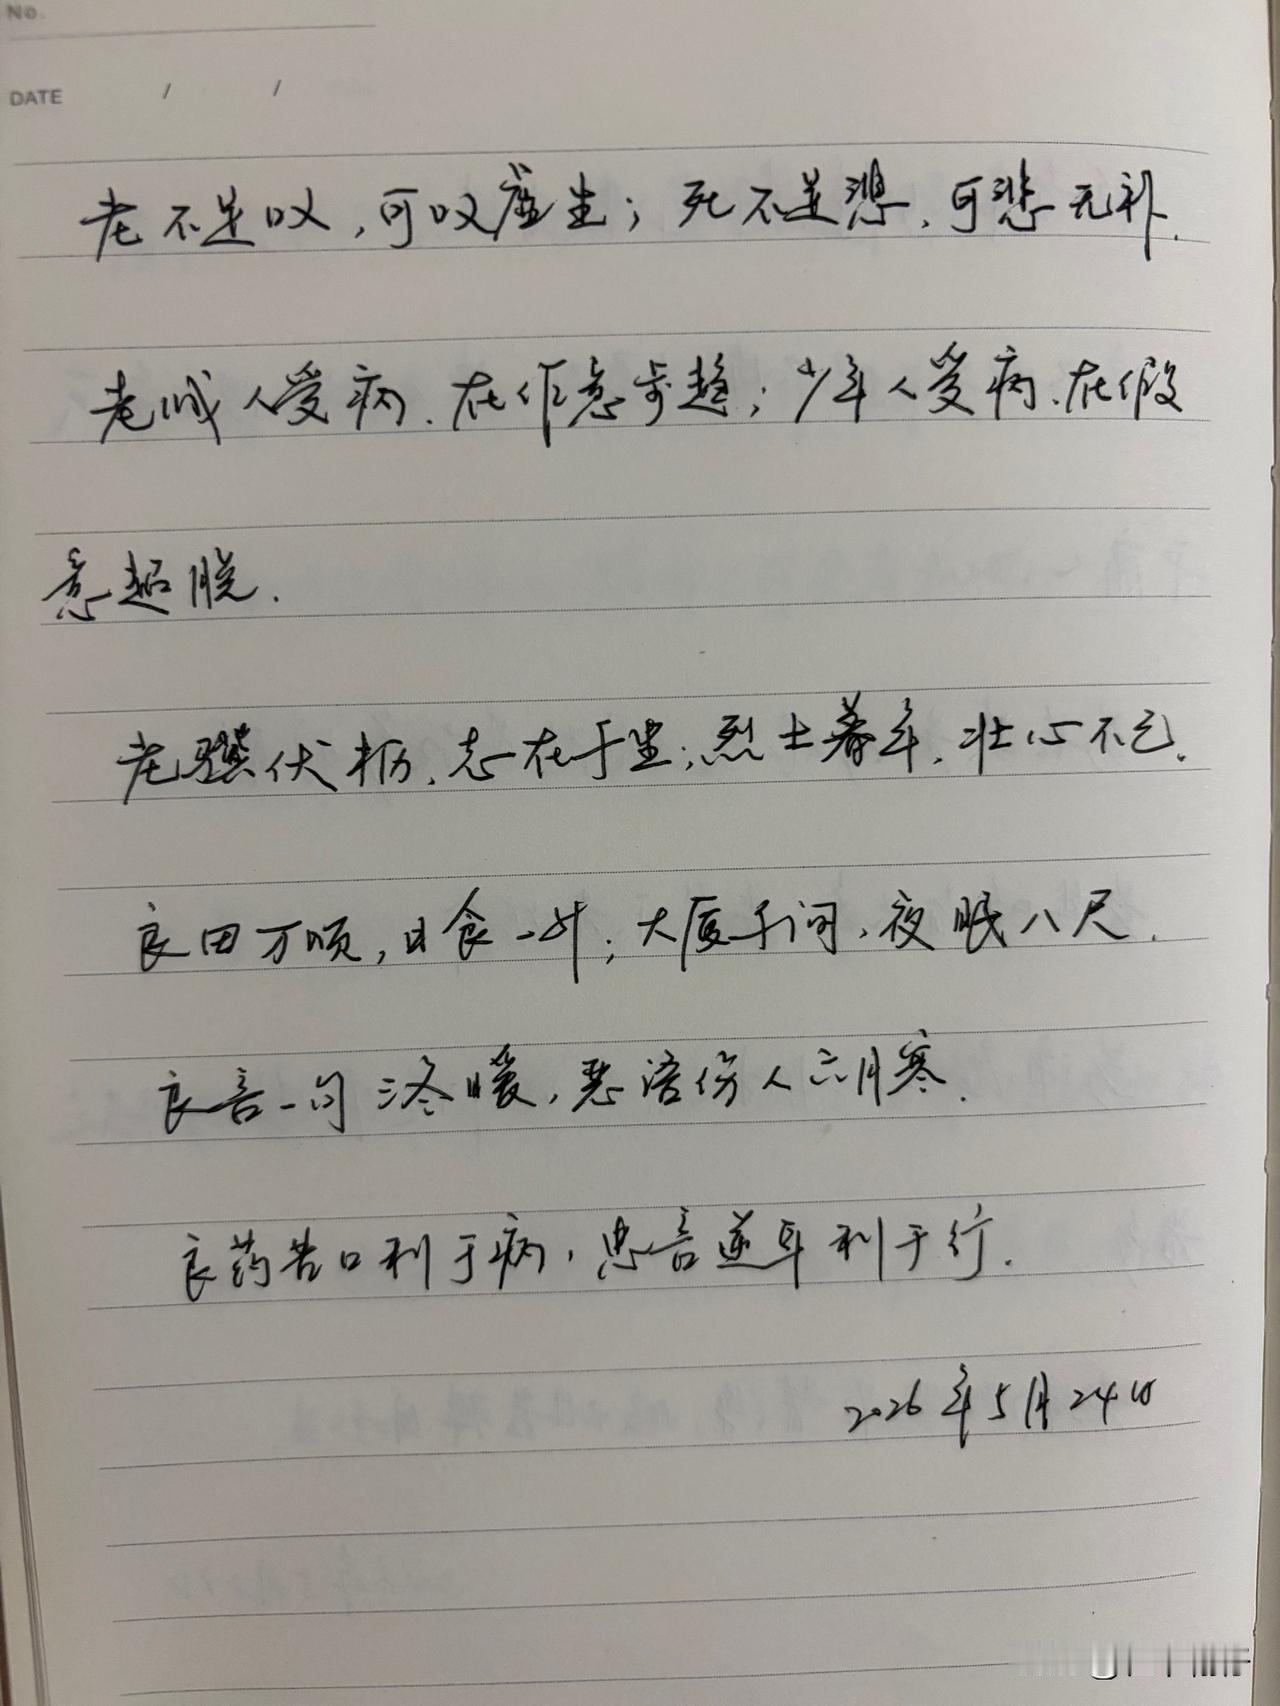 No.
DATE / /
老不足叹，可叹虚生；死不足悲，可悲无补.
老成人受病.在作意步趋；少年人受病.在假
意超脱.
老骥伏枥.志在千里;烈士暮年.壮心不已.
良田万顷,日食一升;大厦千间,夜眠八尺.
良言一句三冬暖,恶语伤人六月寒.
良药苦口利于病,忠言逆耳利于行.
2026年5月24日